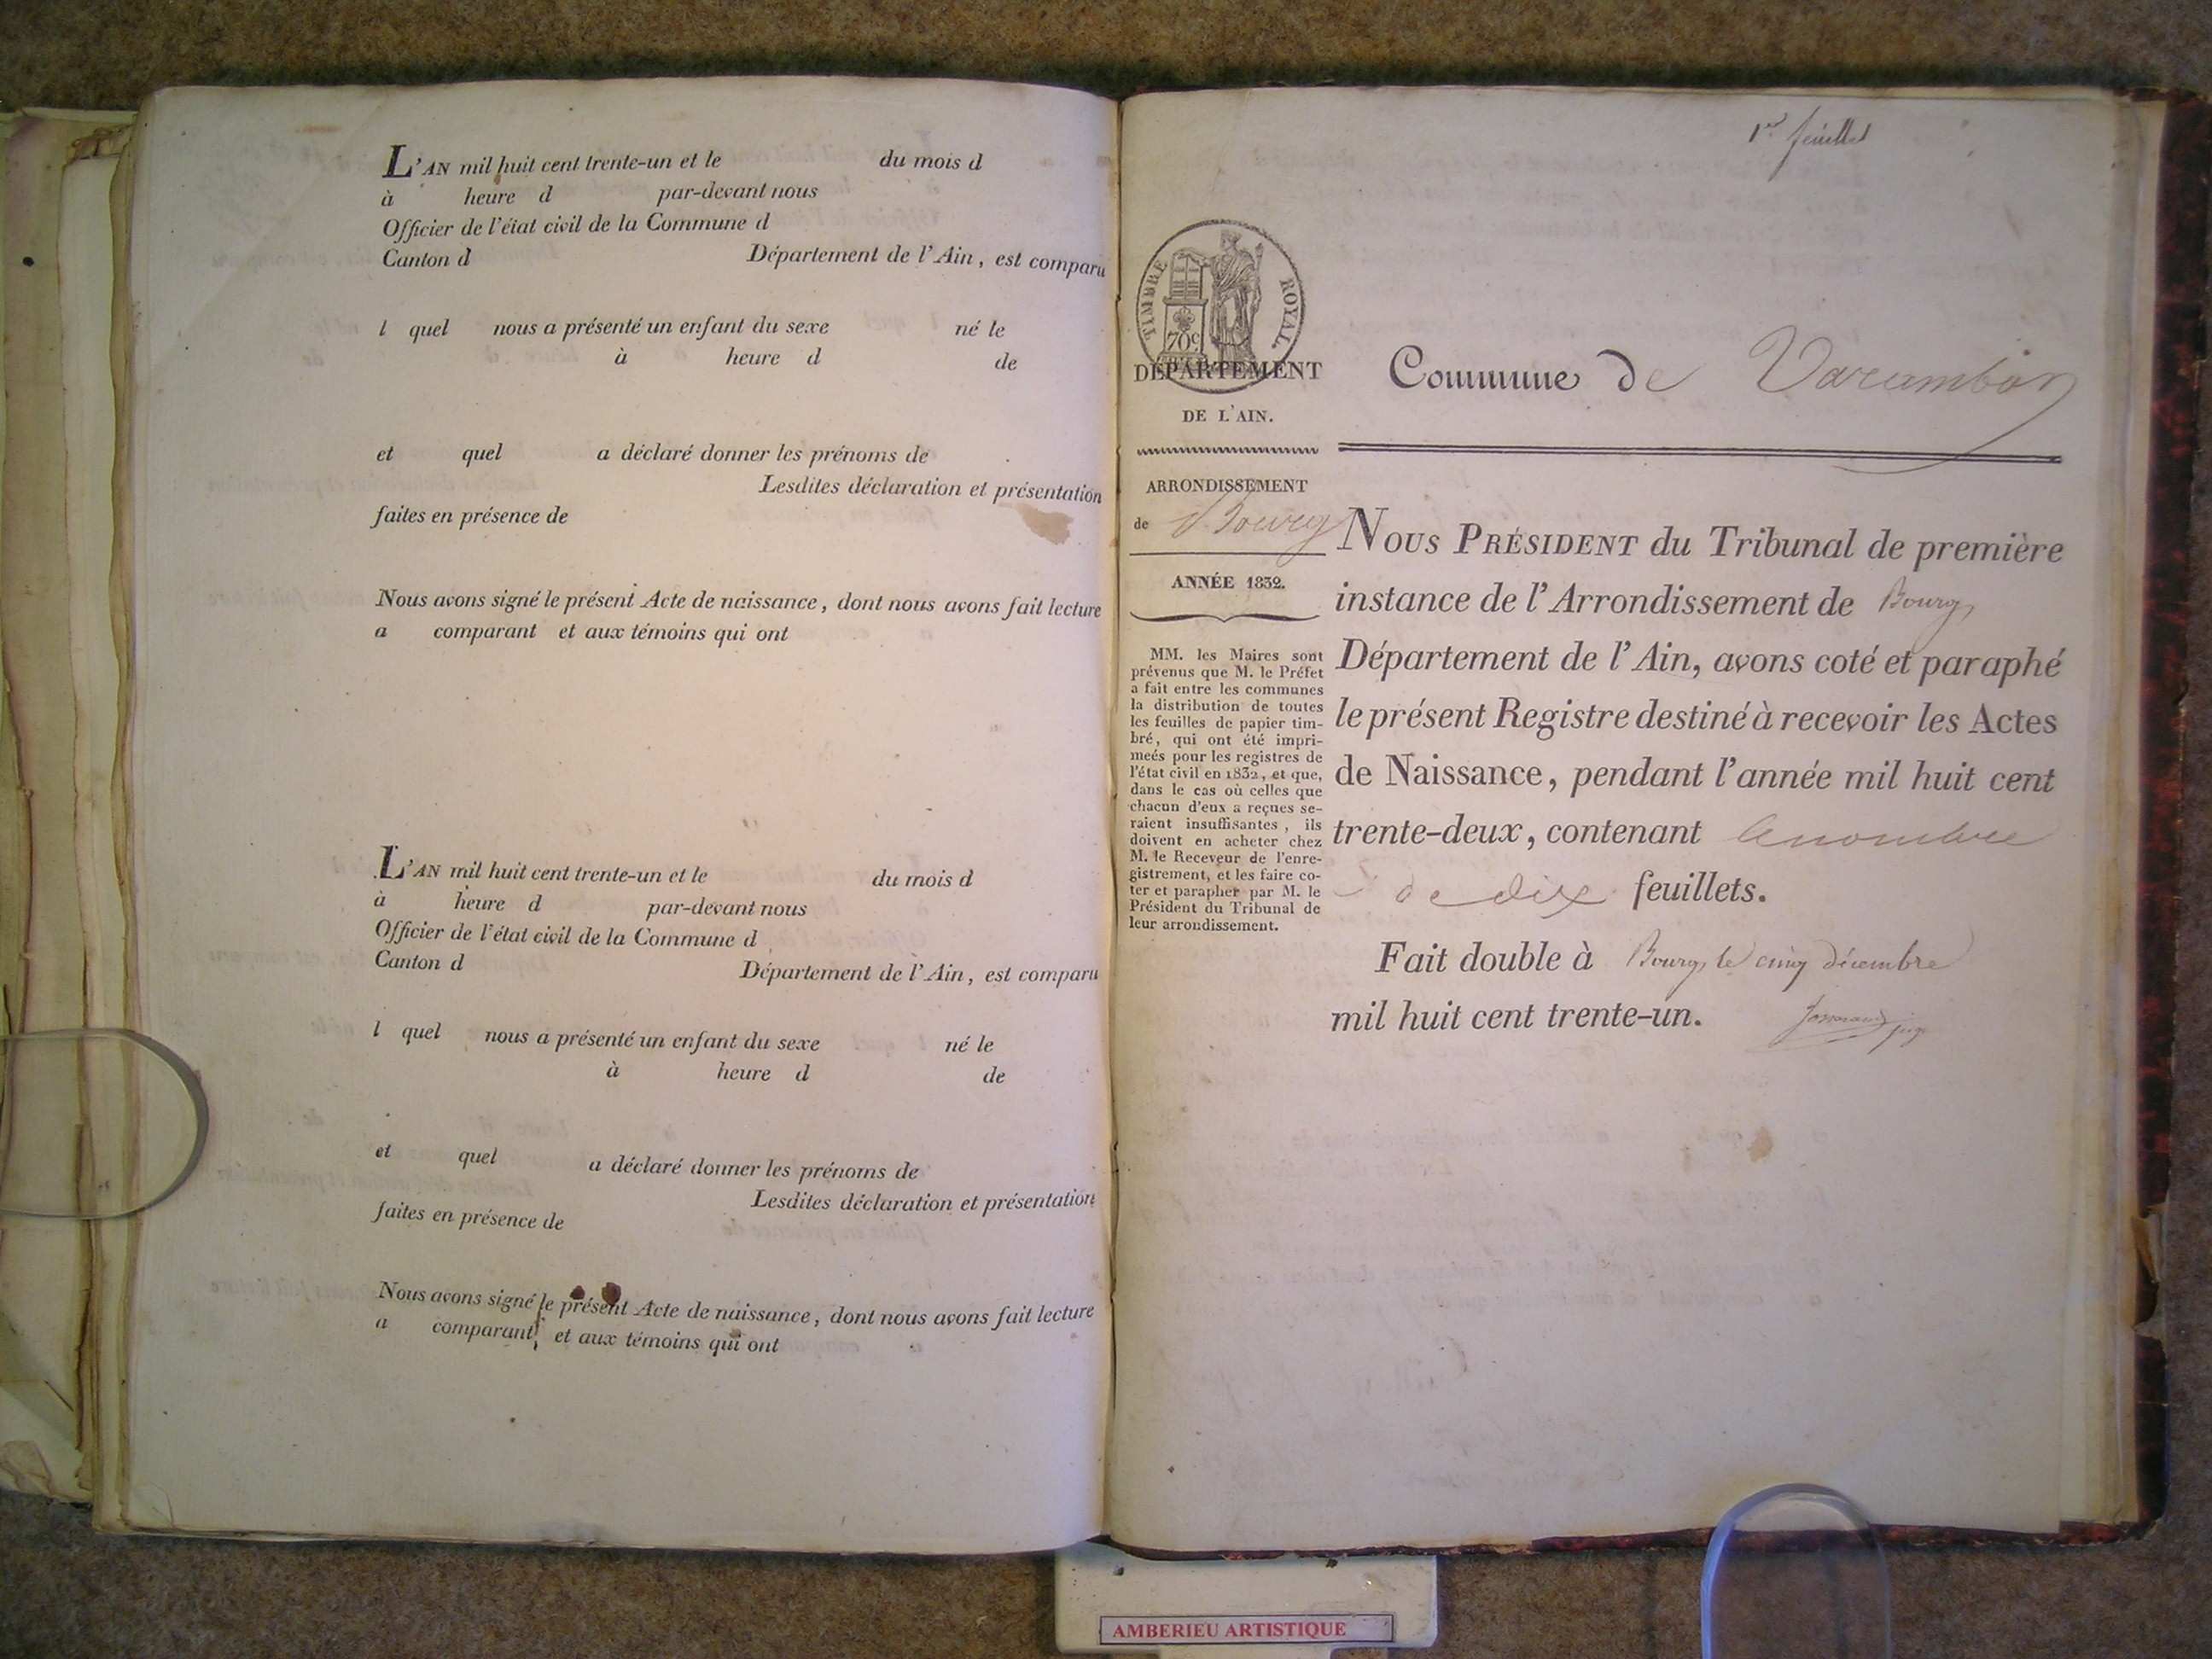 L'AN mil huit cent trente-un et le du mois d
à heure d par-devant nous
Officier de l'état civil de la Commune d
Canton d Département de l'Ain, est comparu
l quel nous a présenté un enfant du sexe né le
à heure d de
et quel a déclaré donner les prénoms de
Lesdites déclaration et présentation
faites en présence de
Nous avons signé le présent Acte de naissance, dont nous avons fait lecture
a comparant et aux témoins qui ont
L'AN mil huit cent trente-un et le du mois d
à heure d par-devant nous
Officier de l'état civil de la Commune d
Canton d Département de l'Ain, est comparu
l quel nous a présenté un enfant du sexe né le
à heure d de
et quel a déclaré donner les prénoms de
Lesdites déclaration et présentation
faites en présence de
Nous avons signé le présent Acte de naissance, dont nous avons fait lecture
a comparant et aux témoins qui ont
1er feuillet
TIMBRE ROYAL
70c
DÉPARTEMENT
DE L'AIN.
ARRONDISSEMENT
de Bourg
ANNÉE 1832.
MM. les Maires sont
prévenus que M. le Préfet
a fait entre les communes
la distribution de toutes
les feuilles de papier tim-
bré, qui ont été impri-
meés pour les registres de
l'état civil en 1832, et que,
dans le cas où celles que
chacun d'eux a reçues se-
raient insuffisantes, ils
doivent en acheter chez
M. le Receveur de l'enre-
gistrement, et les faire co-
ter et parapher par M. le
Président du Tribunal de
leur arrondissement.
Commune de Varambon
NOUS PRÉSIDENT du Tribunal de première
instance de l'Arrondissement de Bourg,
Département de l'Ain, avons coté et paraphé
le présent Registre destiné à recevoir les Actes
de Naissance, pendant l'année mil huit cent
trente-deux, contenant le nombre
de dix feuillets.
Fait double à Bourg, le cinq décembre
mil huit cent trente-un.
AMBERIEU ARTISTIQUE